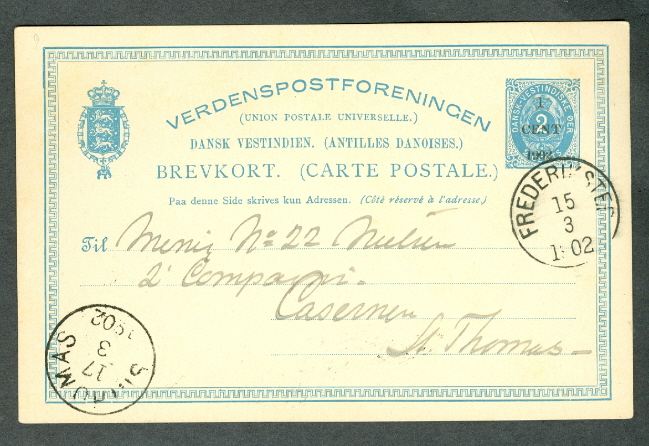 VERDENSPOSTFORENINGEN
(UNION POSTALE UNIVERSELLE.)
DANSK VESTINDIEN. (ANTILLES DANOISES.)
BREVKORT. (CARTE POSTALE.)
Paa denne Side skrives kun Adressen. (Côté réservé à l'adresse.)
DANSK-VESTINDISKE ØER
1
CENT
1902
FREDERIKSTED
15
3
1902
Til Menig No 22 Nielsen
2' Compagni.
Casernen
St. Thomas
ST. THOMAS
17
3
1902